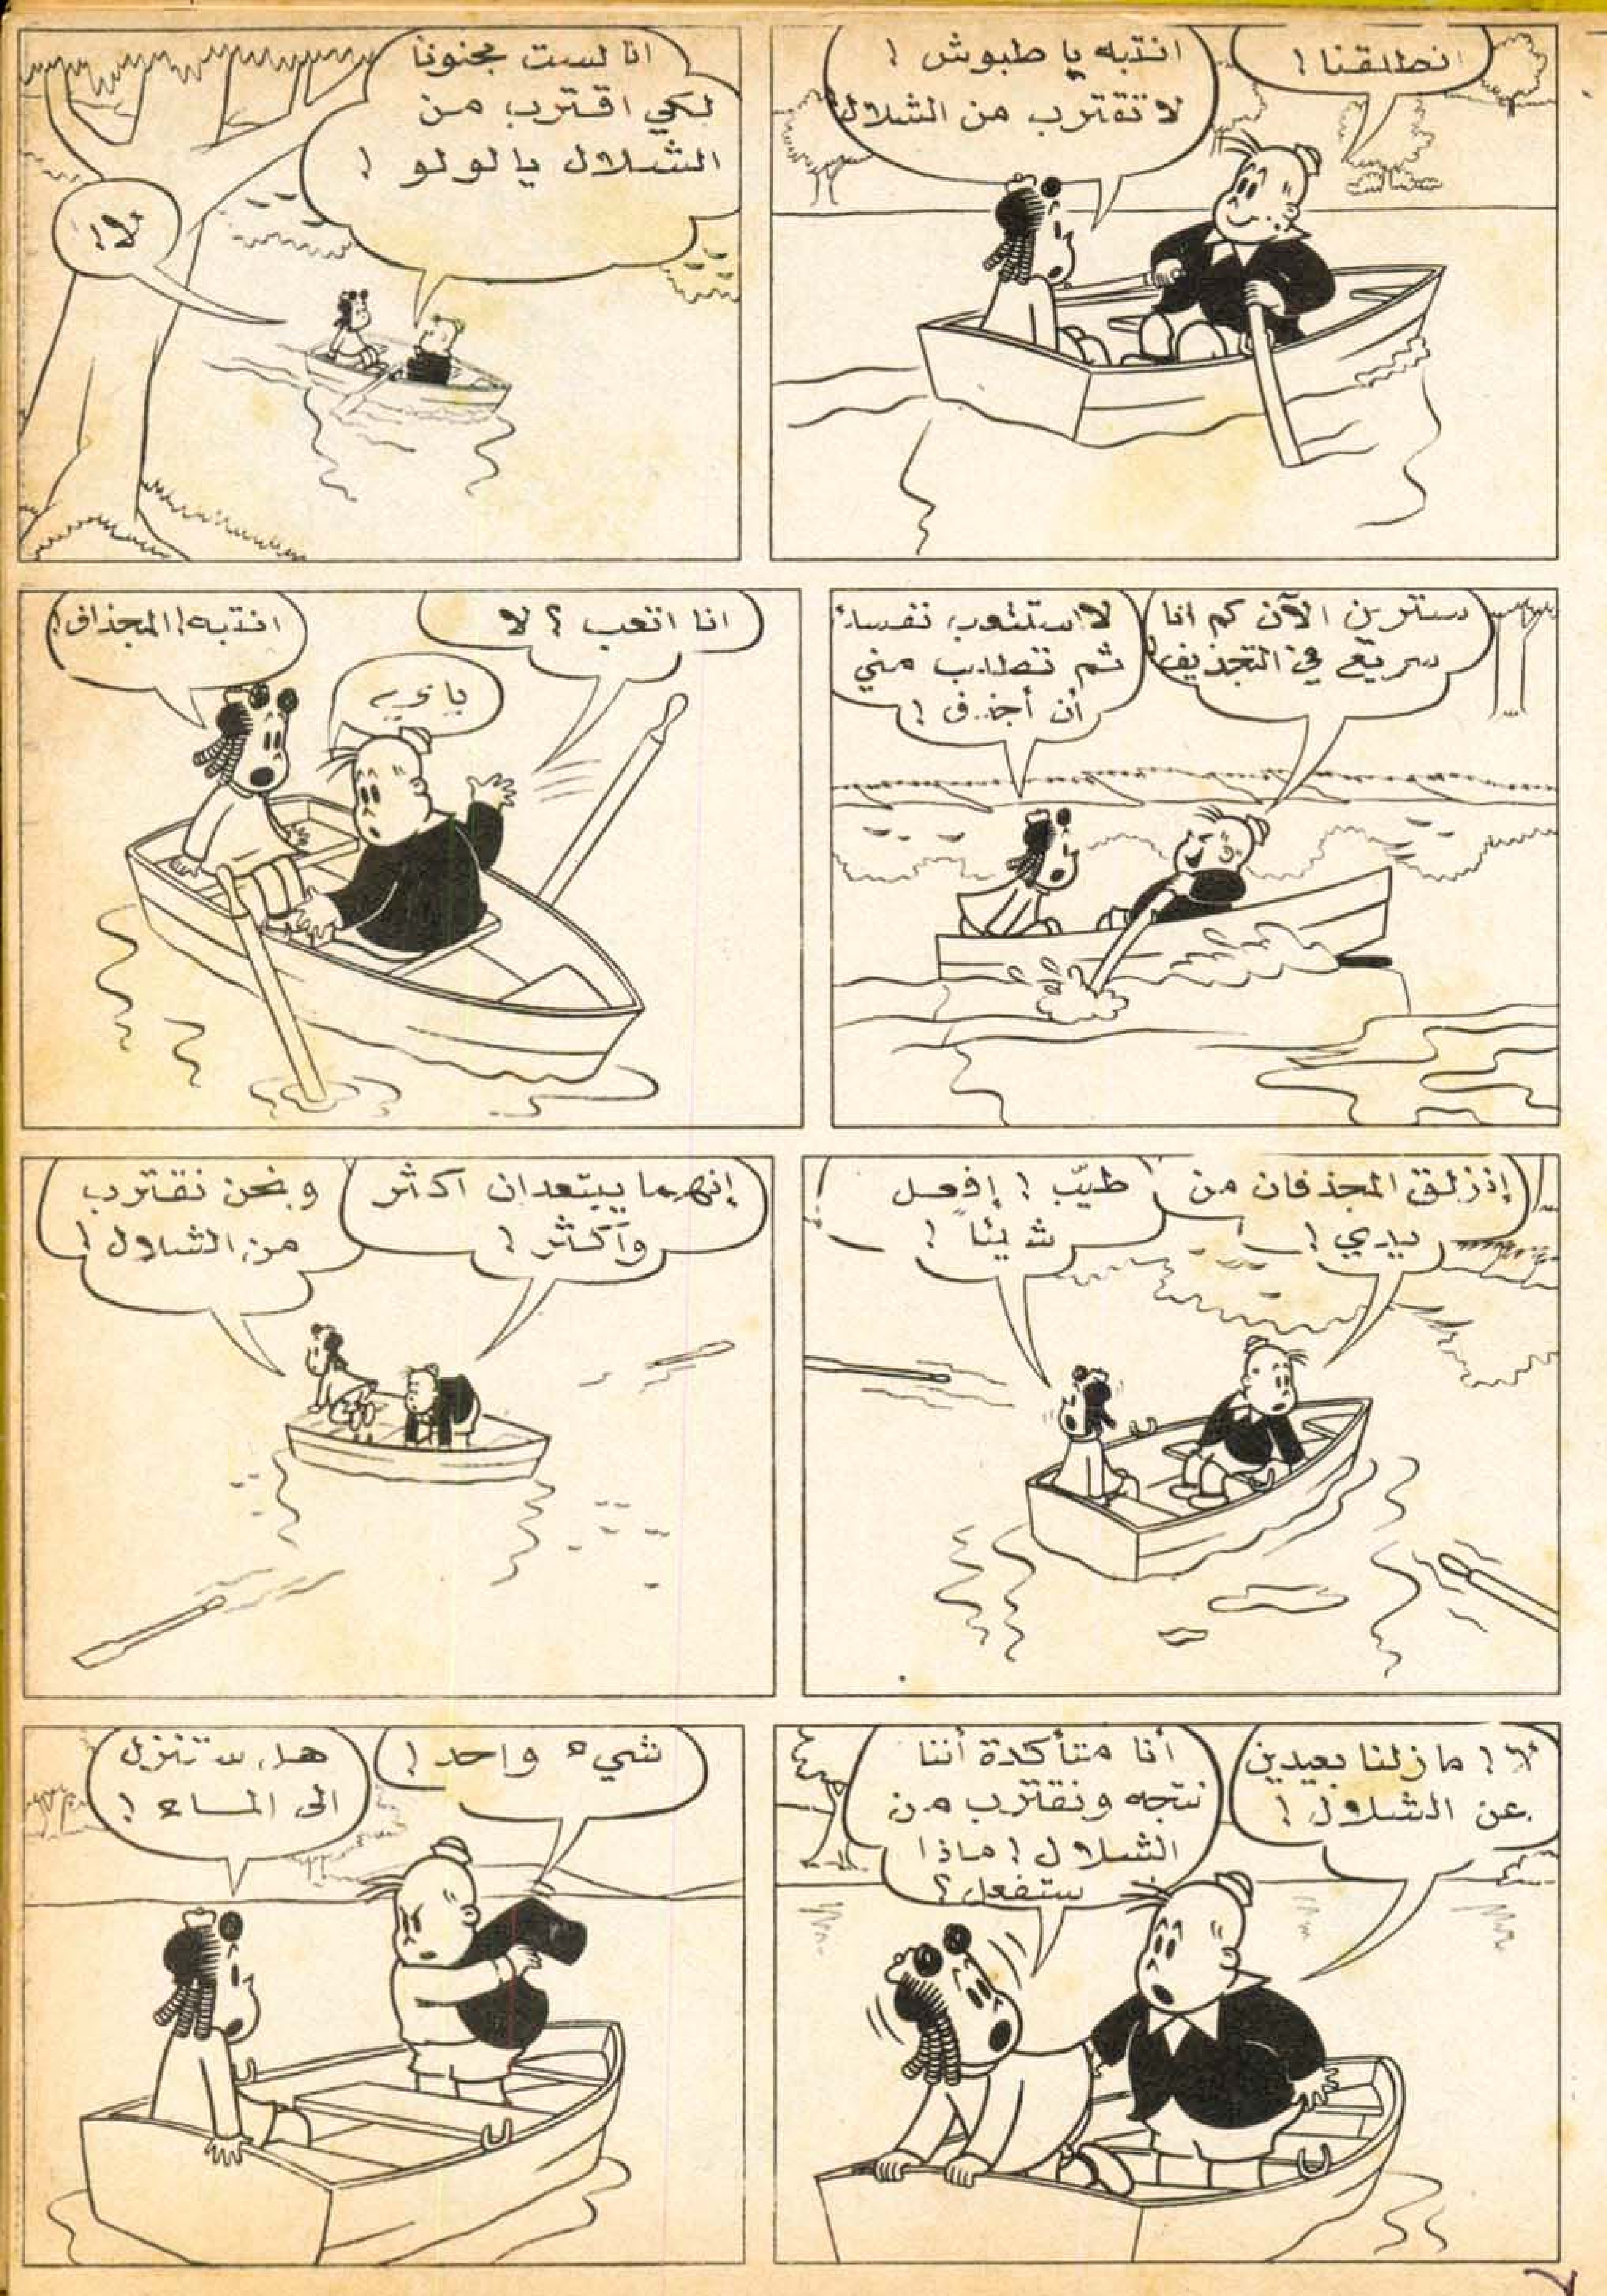 انطلقنا !
انتبه يا طبوش !
لا تقترب من الشلال
انا لست مجنونا
لكي اقترب من
الشلال يا لولو !
لا !
سترين الآن كم انا
سريع في التجذيف
لا ستتعب نفسك
ثم تطلب مني
أن أجذف !
انا اتعب ؟ لا
يا
انتبه ! المجذاف !
إنزلق المجذفان من
يدي !
طيّب ! إفعل
شيئا !
إنهما يبتعدان اكثر
وأكثر !
ونحن نقترب
من الشلال !
لا ! ما زلنا بعيدين
عن الشلال !
أنا متأكدة أننا
نتجه ونقترب من
الشلال ! ماذا
ستفعل ؟
شيء واحد !
هل ستنزل
الى الماء !